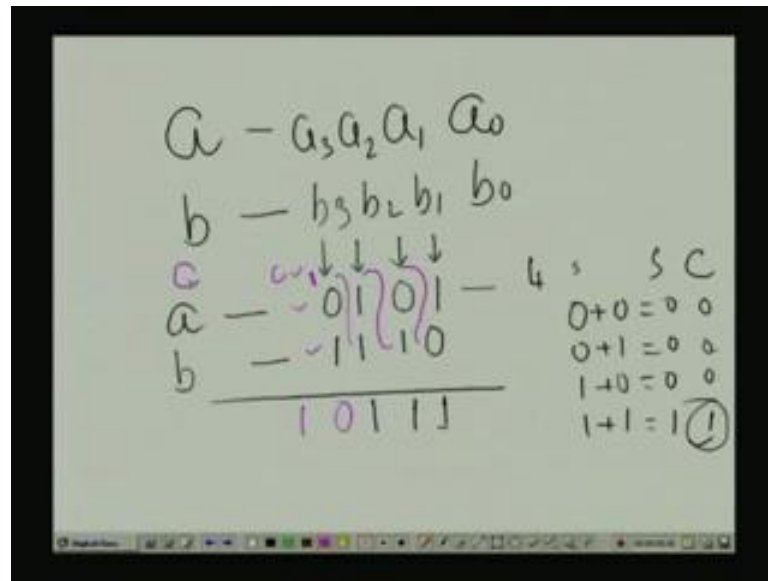 a - a₃ a₂ a₁ a₀
b - b₃ b₂ b₁ b₀
↓ ↓ ↓ ↓
a - 0 1 0 1 - 4
b - 1 1 1 0
1 0 1 1 1
S C
0+0 = 0 0
0+1 = 0 0
1+0 = 0 0
1+1 = 1 1